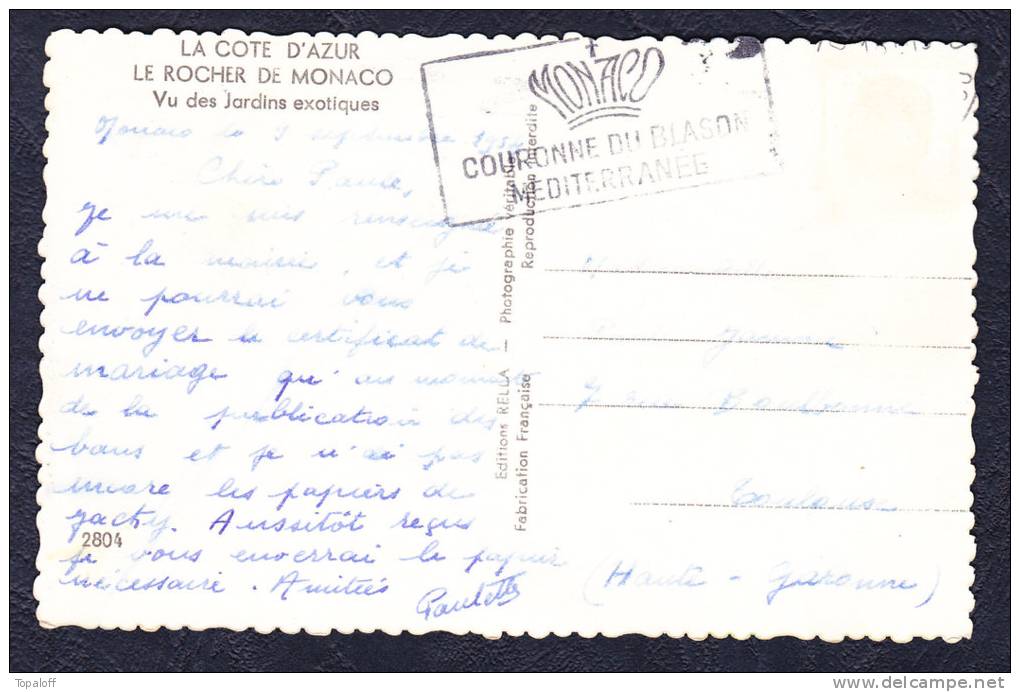 LA COTE D'AZUR
LE ROCHER DE MONACO
Vu des Jardins exotiques
MONACO
COURONNE DU BLASON
MEDITERRANEE
Monaco le 9 septembre
Chère Paule,
Je me suis renseignée
à la mairie, et je
ne pourrai vous
envoyer le certificat de
mariage qu'au moment
de la publication des
bans et je n'ai pas
encore les papiers de
Jacky. Aussitôt reçus
je vous enverrai le papier
nécessaire. Amitiés
Paulette
2804
Editions RELLA — Photographie véritable
Fabrication Française Reproduction Interdite
7 rue
Toulouse
(Haute - Garonne)
Topaloff
www.delcampe.net